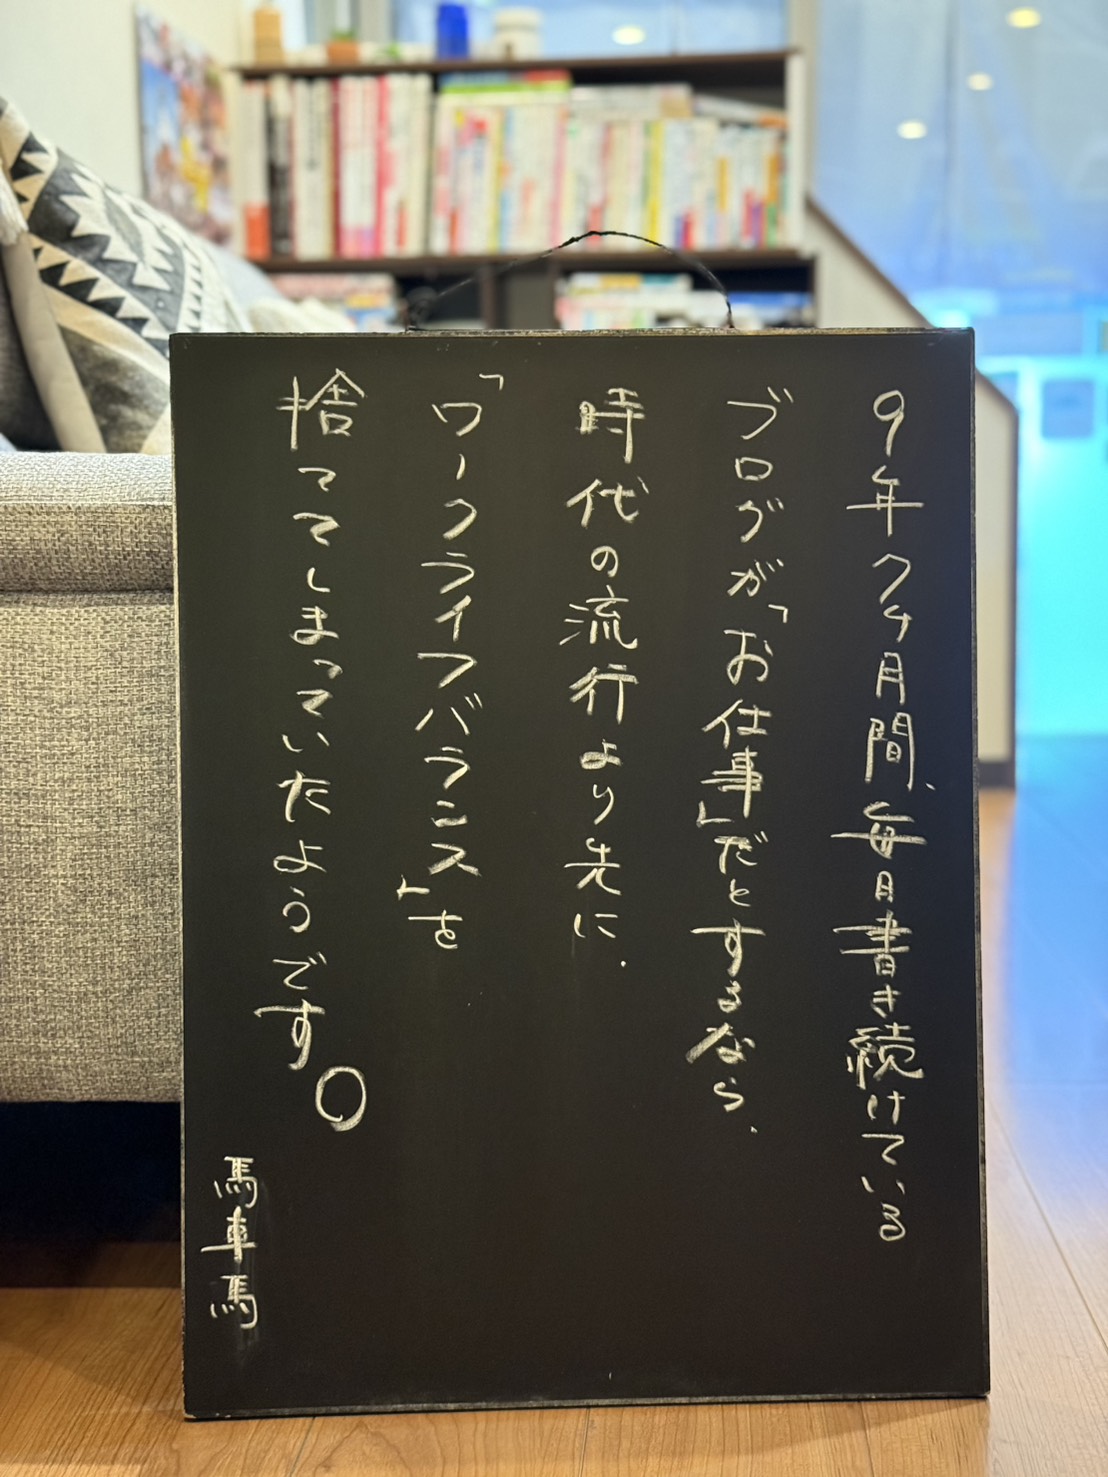 9年7ヶ月間、毎日書き続けている
ブログが「お仕事」だとするなら、
時代の流行より先に、
「ワークライフバランス」を
捨ててしまっていたようです。
馬車馬